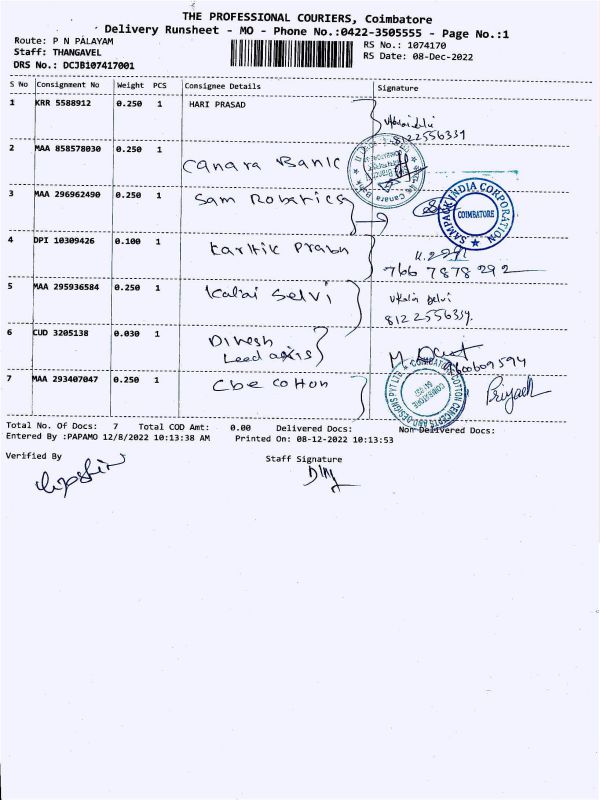 THE PROFESSIONAL COURIERS, Coimbatore
Delivery Runsheet - MO - Phone No.:0422-3505555 - Page No.:1
Route: P N PALAYAM
RS No.: 1074170
Staff: THANGAVEL
RS Date: 08-Dec-2022
DRS No.: DCJB107417001
S No Consignment No Weight PCS Consignee Details Signature
1 KRR 5588912 0.250 1 HARI PRASAD
8122556339
2 MAA 858578030 0.250 1 Canara Bank
Canara Bank
3 MAA 296962490 0.250 1 Sam Robotics
SAMPACK INDIA CORPORATION
COIMBATORE
4 DPI 10309426 0.100 1 Karthik Prabu
766 7878 292
5 MAA 295936584 0.250 1 Kalai Selvi
Kalai Selvi
8122556339
6 CUD 3205138 0.030 1 Dinesh
Lead axis
7 MAA 293407047 0.250 1 Cbe Cotton
COIMBATORE COTTON CONCEPTS AND DESIGNS PVT LTD
COIMBATORE
Total No. Of Docs: 7 Total COD Amt: 0.00 Delivered Docs: Non Delivered Docs:
Entered By :PAPAMO 12/8/2022 10:13:38 AM Printed On: 08-12-2022 10:13:53
Verified By
Staff Signature